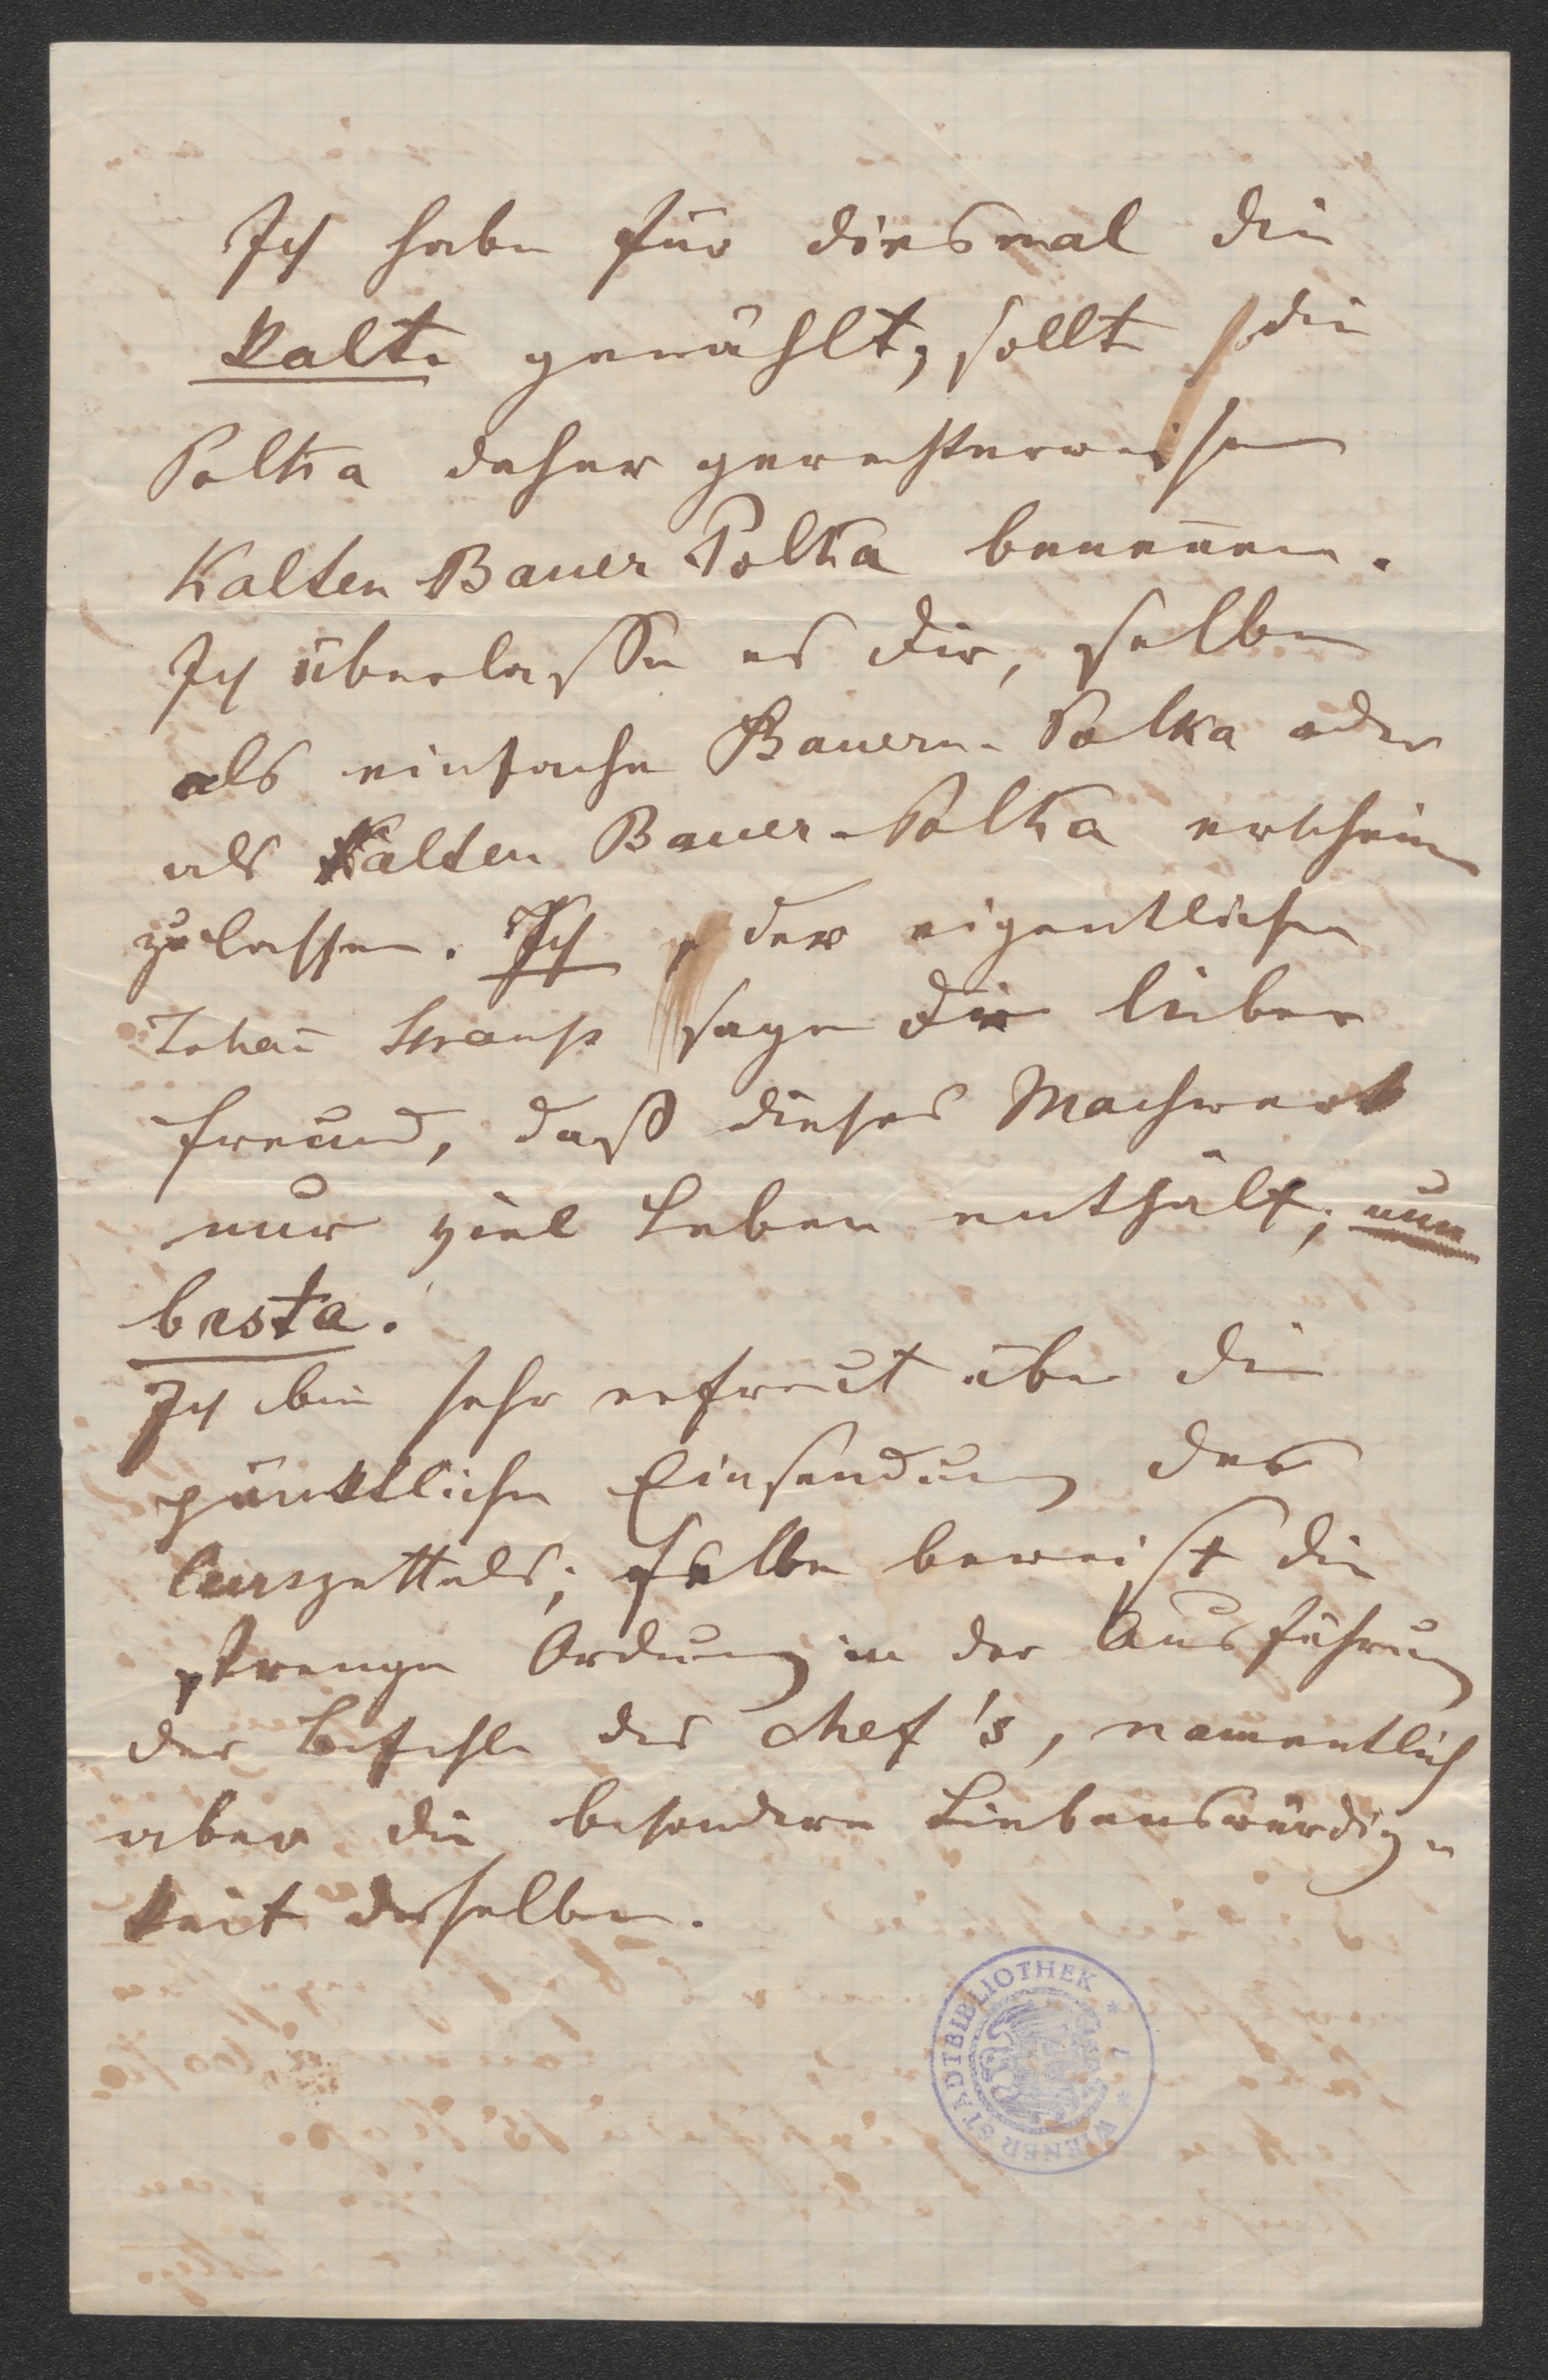 Ich habe für diesmal die
kalte gewählt, sollte die
Polka daher gerechterweise
Kalten Bauer Polka benennen.
Ich überlasse es dir, selbe
als einfache Bauern-Polka oder
als Kalten Bauer-Polka erscheinen
zu lassen. Ich, der eigentliche
Johañ Strauß sage dir lieber
Freund, daß dieses Machwerk
nur viel Leben enthält; nun
basta.
Ich bin sehr erfreut über die
pünktliche Einsendung des
Curszettels; selbe beweist die
strenge Ordnung in der Ausführung
der Befehle des Chef's, namentlich
aber die besondere Liebenswürdig-
keit desselben.
WIENER STADTBIBLIOTHEK * 7 *